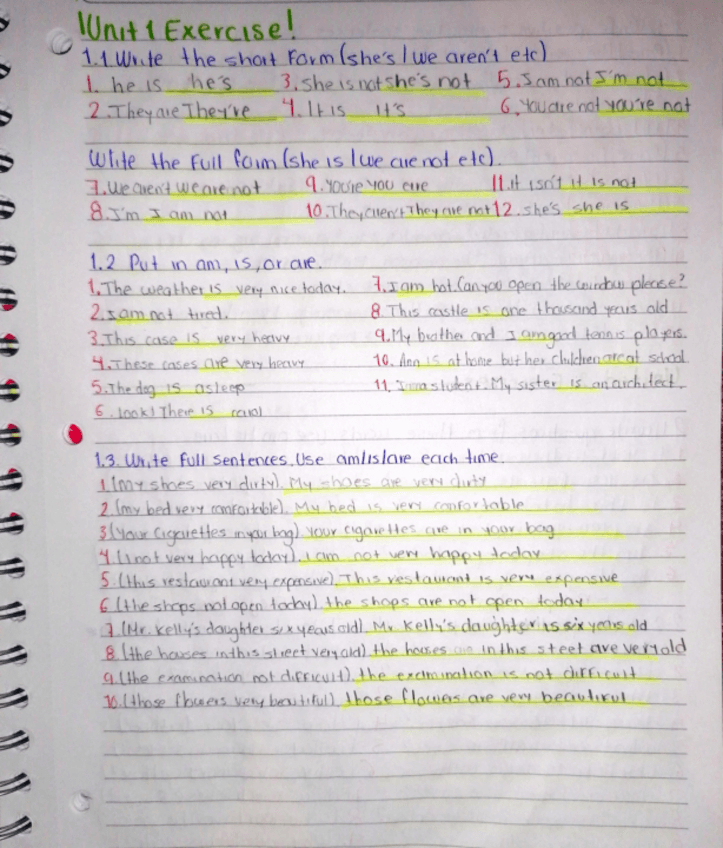 Unit 1 Exercise!
1.1 Write the short form (she's / we aren't etc)
1. he is he's 3. She is not she's not 5. I am not I'm not
2. They are They're 4. It is It's 6. You are not you're not
Write the full form (she is / we are not etc).
7. We aren't we are not 9. You're you are 11. it isn't it is not
8. I'm I am not 10. They aren't They are not 12. she's she is
1.2 Put in am, is, or are.
1. The weather is very nice today. 7. I am hot. Can you open the window please?
2. I am not tired. 8. This castle is one thousand years old
3. This case is very heavy 9. My brother and I am good tennis players.
4. These cases are very heavy 10. Ann is at home but her children are at school
5. The dog is asleep 11. I a student. My sister is an architect.
6. look! There is carol
1.3. Write full sentences. Use am/is/are each time.
1 (my shoes very dirty). My shoes are very dirty
2 (my bed very comfortable). My bed is very comfortable
3 (Your cigarettes in your bag). your cigarettes are in your bag
4 (I not very happy today). I am not very happy today
5 (this restaurant very expensive). This restaurant is very expensive
6 (the shops not open today). the shops are not open today
7 (Mr. Kelly's daughter six years old) Mr Kelly's daughter is six years old
8 (the houses in this street very old) the houses in this steet are very old
9 (the examination not difficult). the examination is not difficult
10. (those flowers very beautiful) those flowers are very beautiful